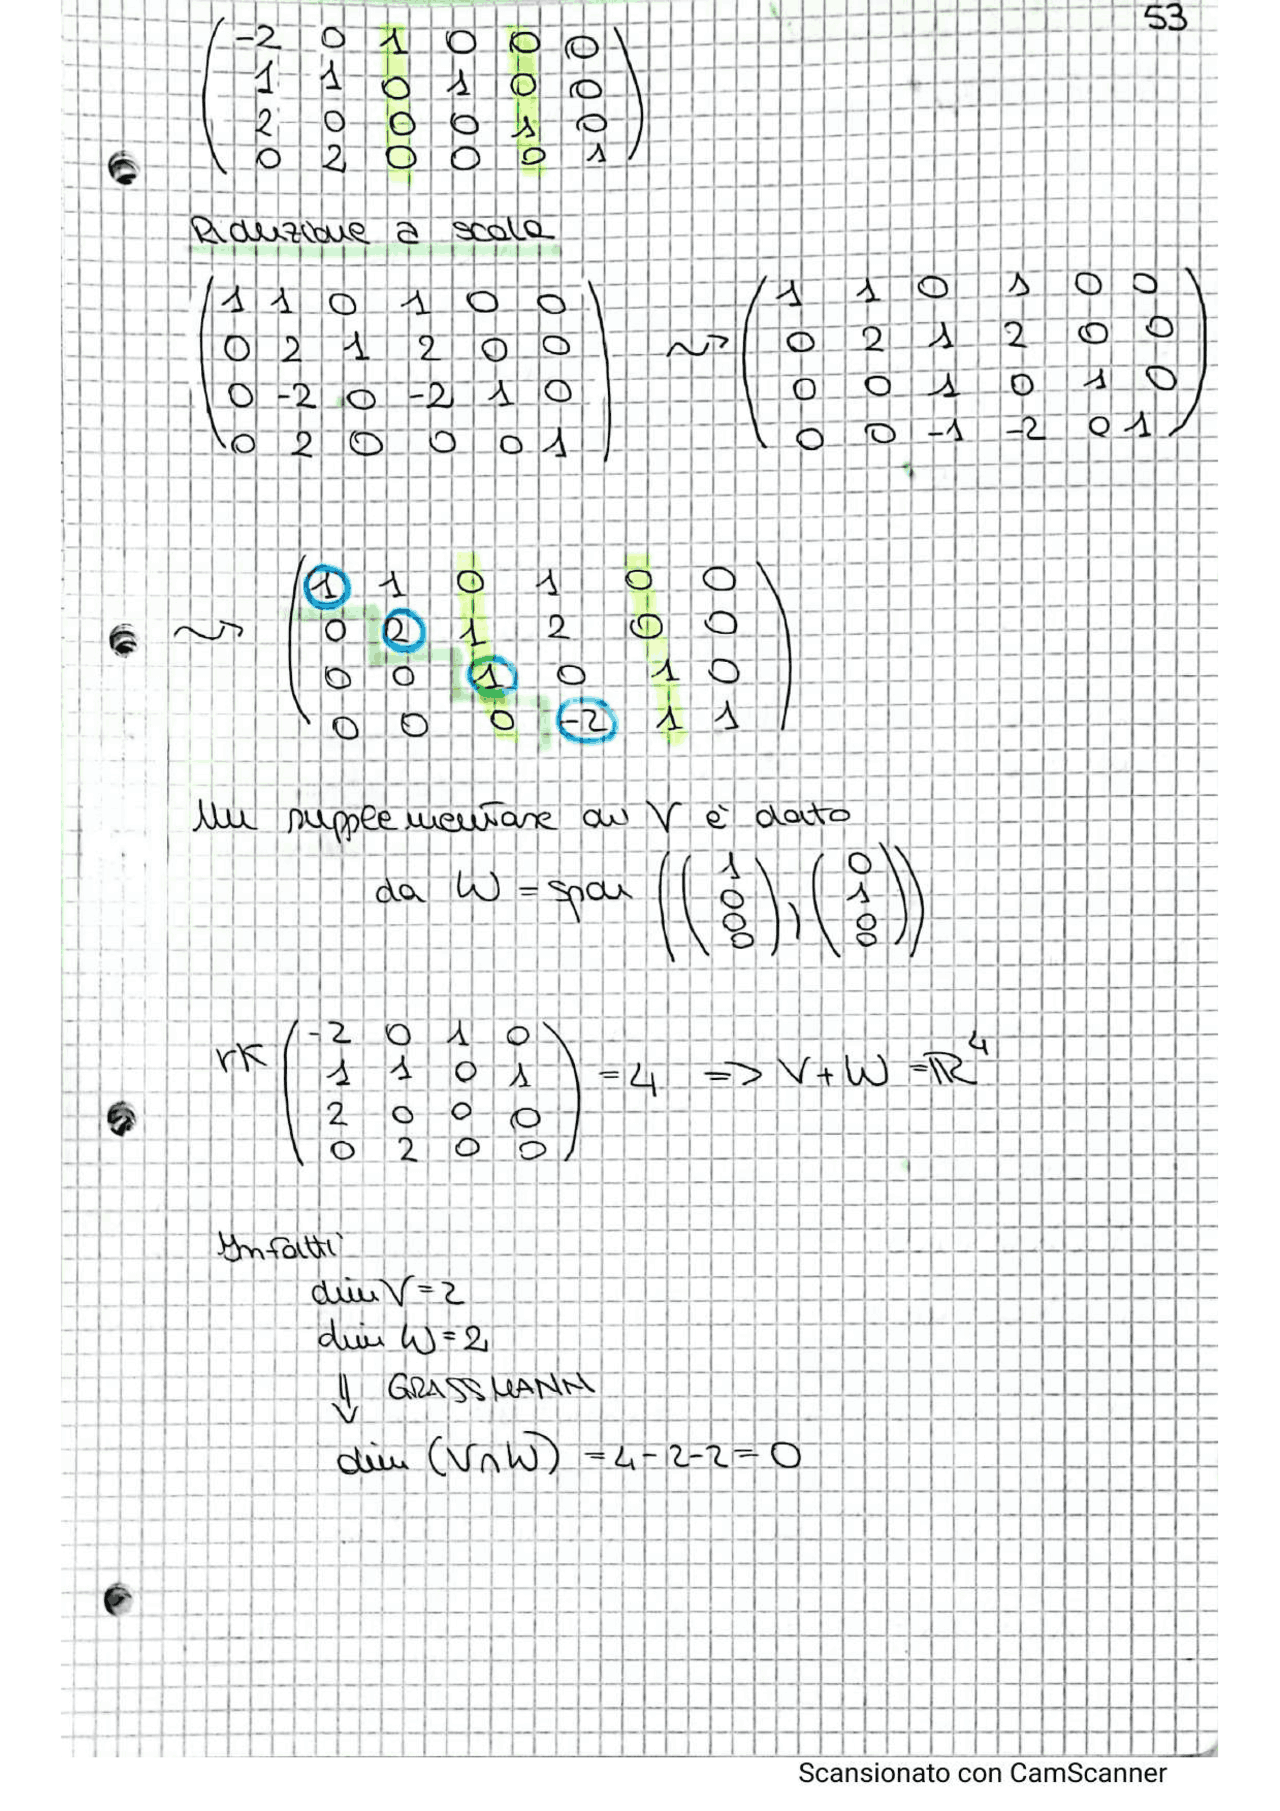 53
-2 0 1 0 0 0
1 1 0 1 0 0
2 0 0 0 1 0
0 2 0 0 0 1
Riduzione a scala
1 1 0 1 0 0
0 2 1 2 0 0
0 -2 0 -2 1 0
0 2 0 0 0 1
~> 1 1 0 1 0 0
0 2 1 2 0 0
0 0 1 0 1 0
0 0 -1 -2 0 1
~> 1 1 0 1 0 0
0 2 1 2 0 0
0 0 1 0 1 0
0 0 0 -2 1 1
Un supplementare di V è dato
da W = span ((1 0 0 0), (0 1 0 0))
rk (-2 0 1 0
1 1 0 1
2 0 0 0
0 2 0 0) = 4 => V+W = ℝ⁴
Infatti
dim V = 2
dim W = 2
⇓ GRASSMANN
dim (V∩W) = 4-2-2 = 0
Scansionato con CamScanner